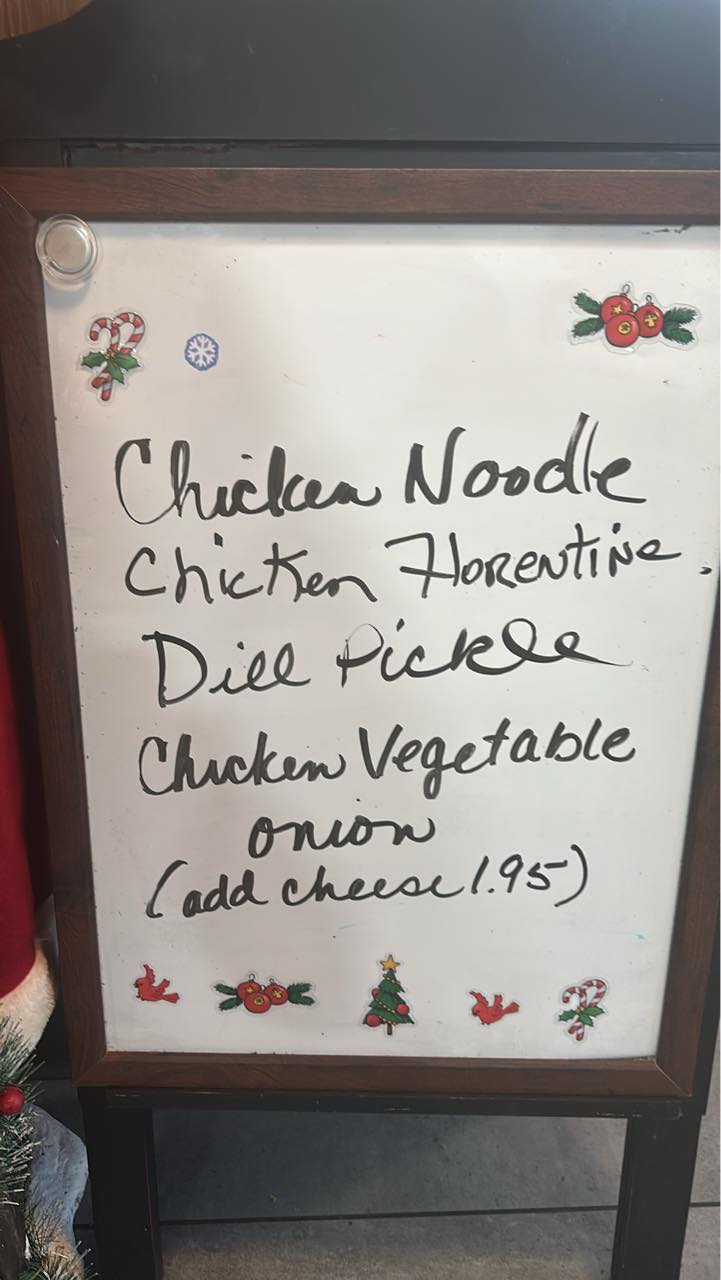 Chicken Noodle
Chicken Florentine.
Dill Pickle
Chicken Vegetable
onion
(add cheese 1.95)